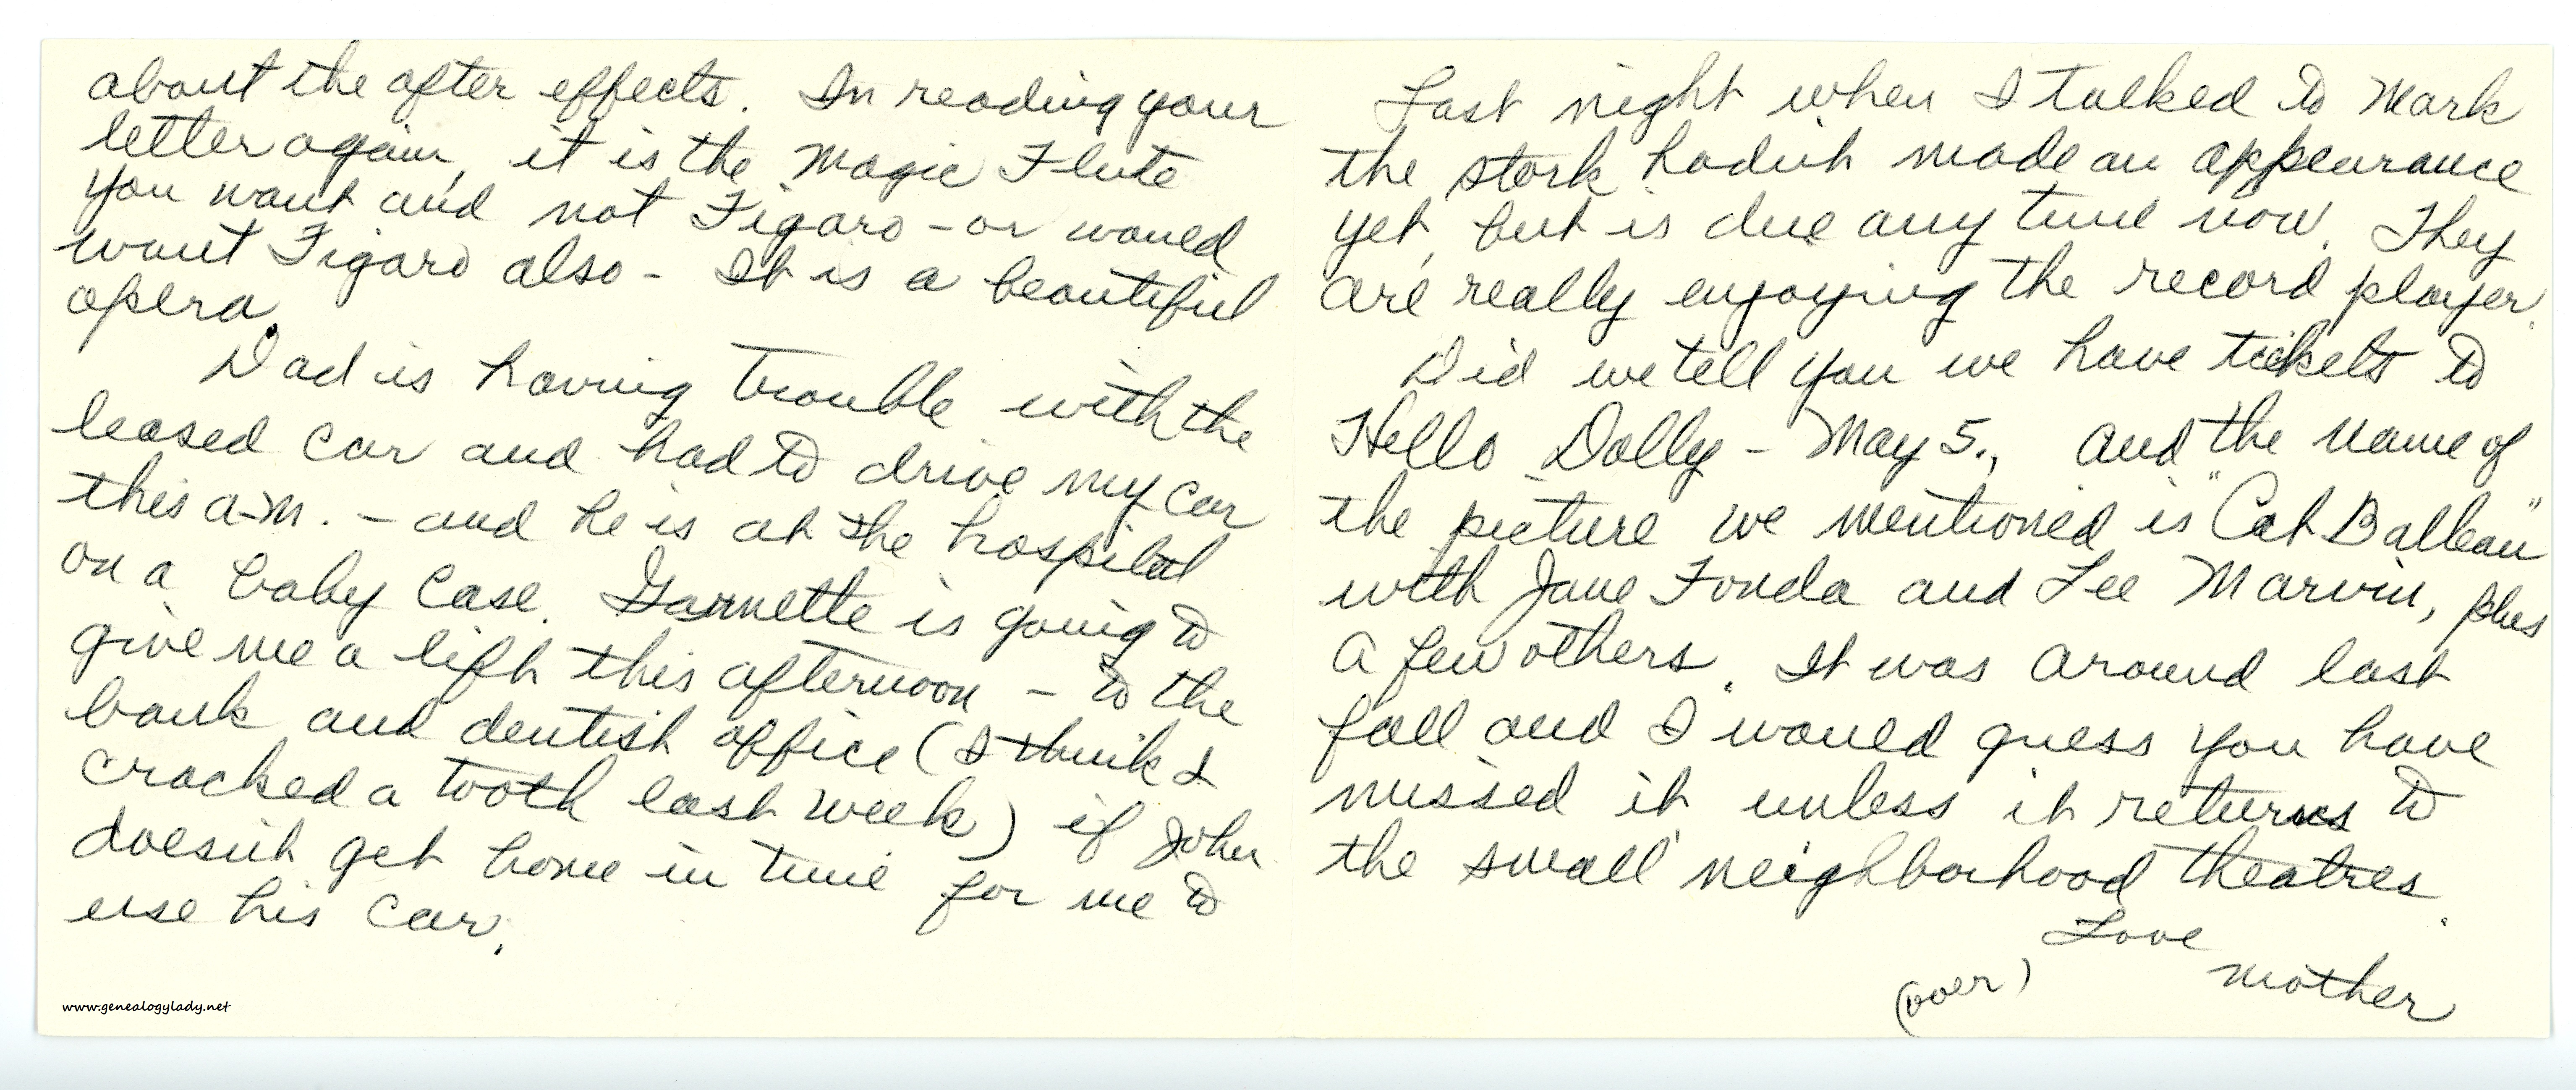 about the after effects. In reading your
letter again, it is the Magic Flute
you want and not Figaro - or would
want Figaro also - It is a beautiful
opera.
Dad is having trouble with the
leased car and had to drive my car
this a.m. - and he is at the hospital
on a baby case. Garnette is going to
give me a lift this afternoon - to the
bank and dentist office (I think I
cracked a tooth last week) if John
doesn't get home in time for me to
use his car.
www.genealogylady.net
Last night when I talked to Mark
the stork hadn't made an appearance
yet, but is due any time now. They
are really enjoying the record player.
Did we tell you we have tickets to
Hello Dolly - May 5., and the name of
the picture we mentioned is "Cat Balleau"
with Jane Fonda and Lee Marvin, plus
a few others. It was around last
fall and I would guess you have
missed it unless it returns to
the small neighborhood theatres.
Love
Mother
(over)